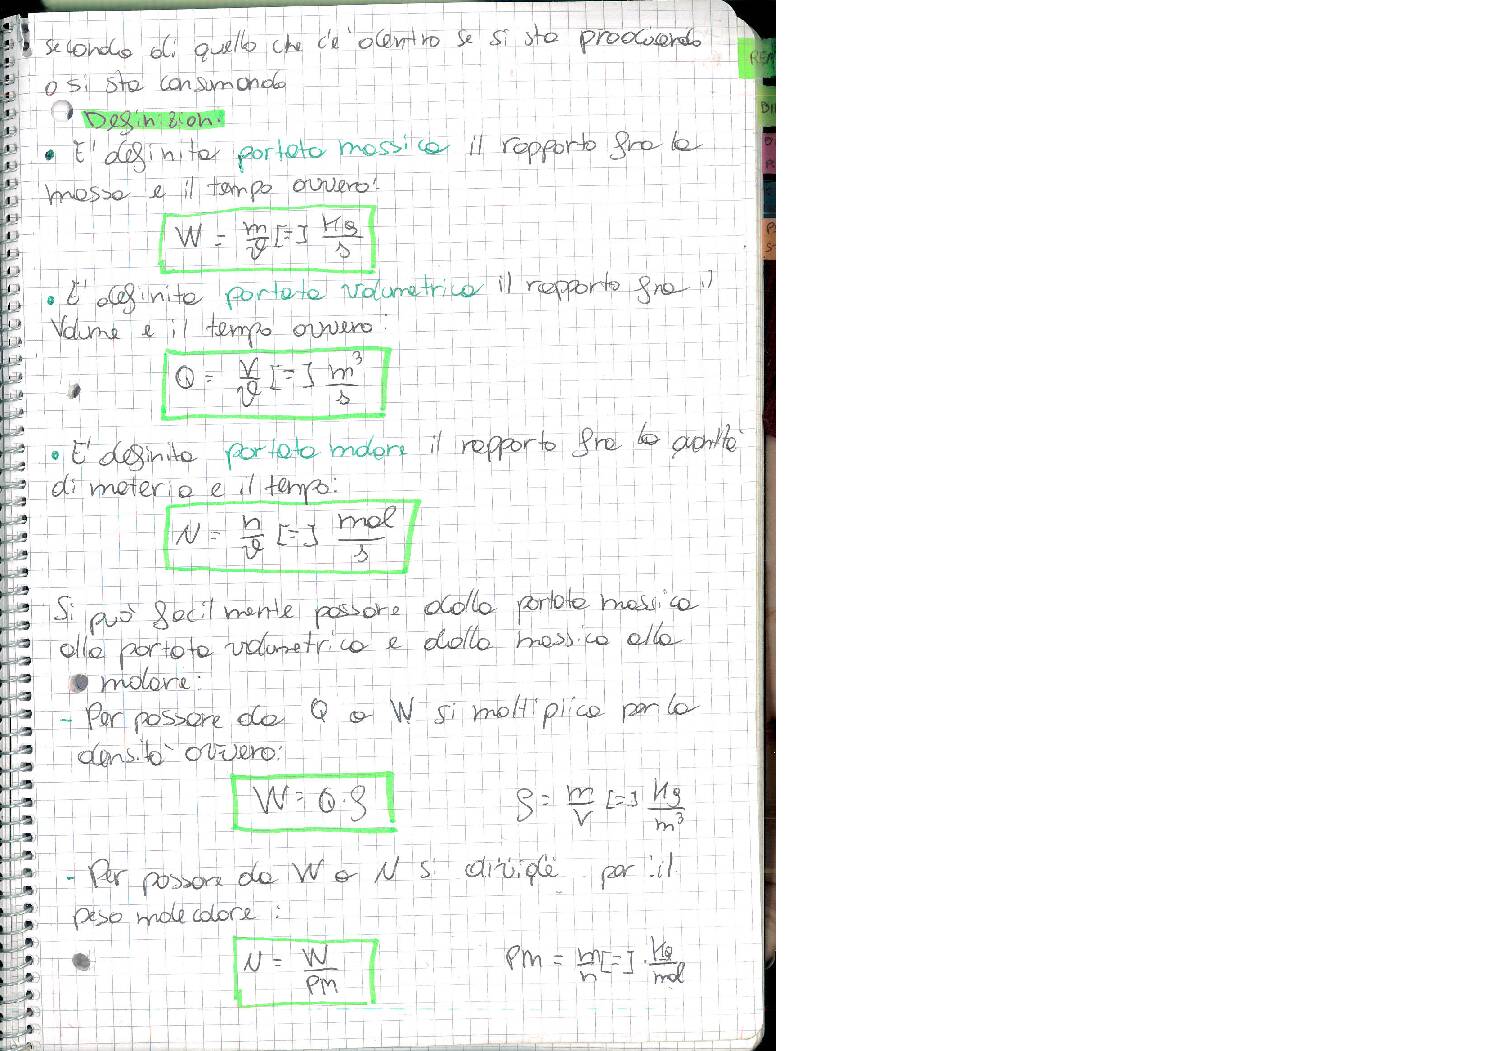 secondo di quello che c'è dentro se si sta producendo
o si sta consumando
Definizioni
• E' definita portata massica il rapporto fra la
massa e il tempo ovvero:
W = m/ϑ [=] Kg/s
• E' definita portata volumetrica il rapporto fra il
Volume e il tempo ovvero:
Q = V/ϑ [=] m³/s
• E' definita portata molare il rapporto fra la quantità
di materia e il tempo:
N = n/ϑ [=] mol/s
Si può facilmente passare dalla portata massica
alla portata volumetrica e dalla massica alla
molare:
- Per passare da Q a W si moltiplica per la
densità ovvero:
W = Q·ρ ρ = m/V [=] Kg/m³
- Per passare da W a N si divide per il
peso molecolare:
N = W/PM PM = m/n [=] Kg/mol